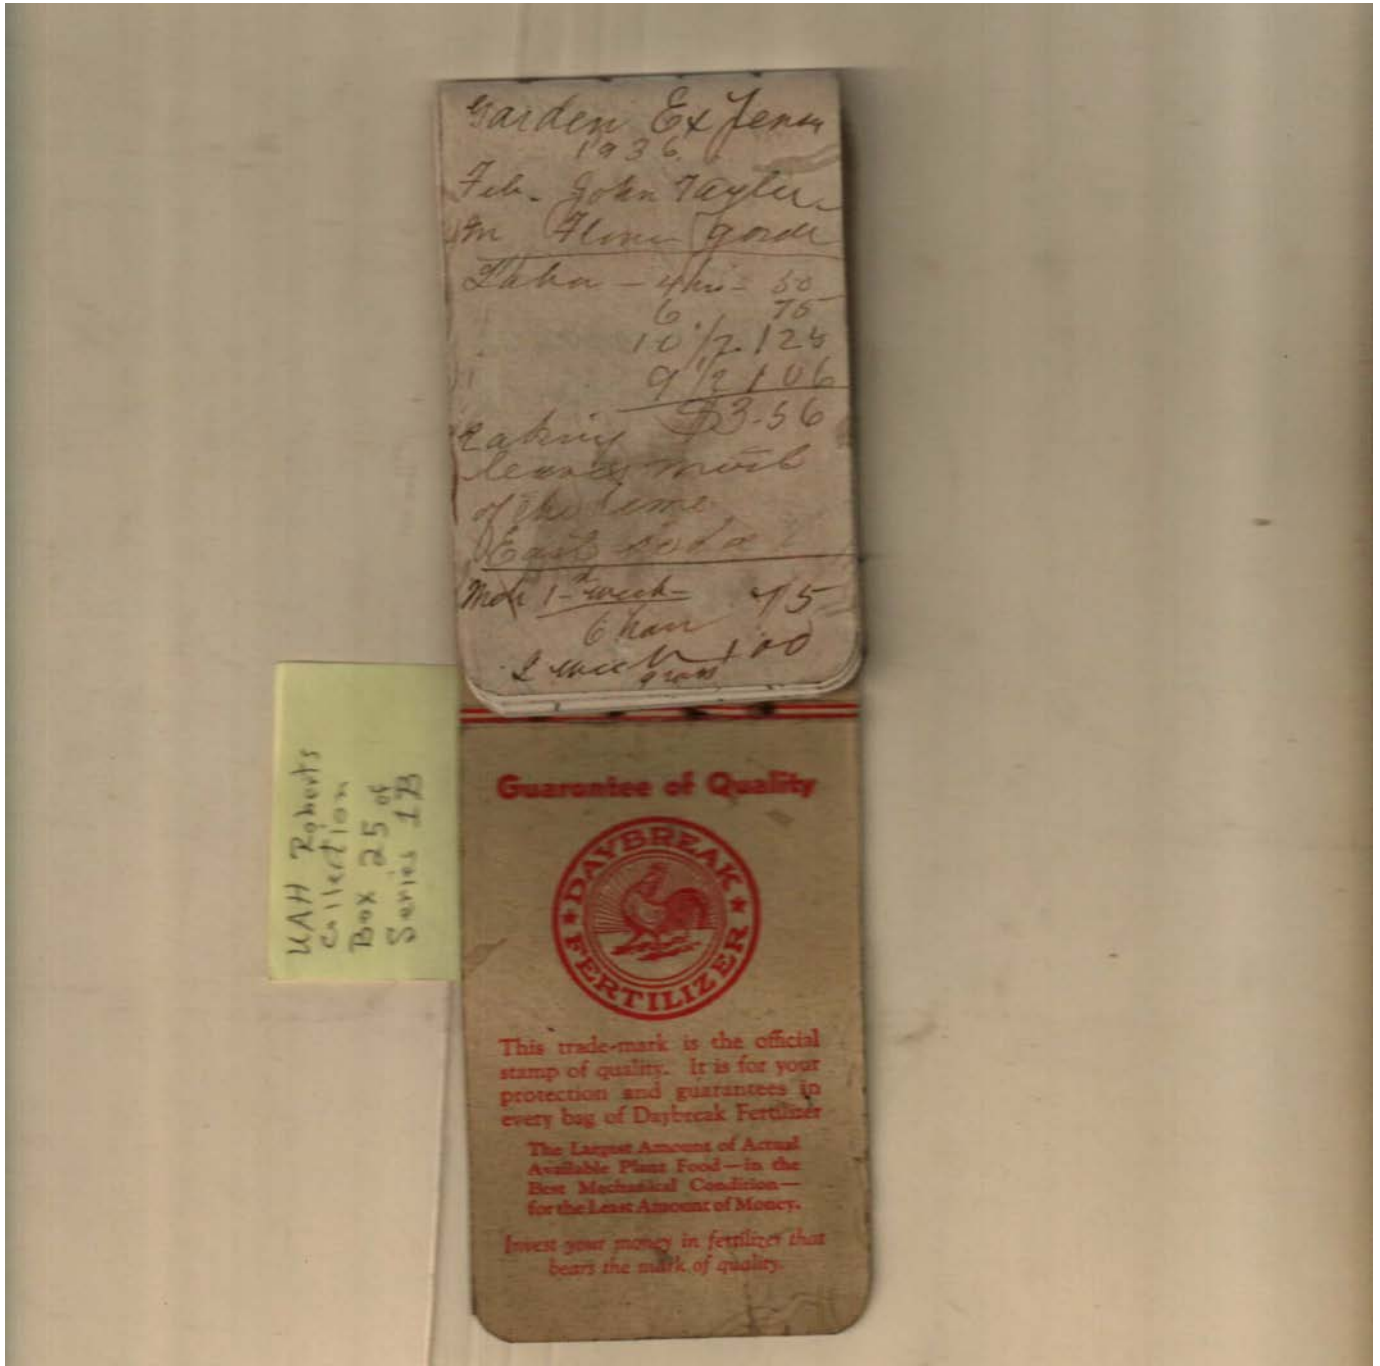 Garden Expense
1936
Feb. John Taylor
In Flower Garde
Labor - 4 hrs - 50
6 75
10 1/2 125
9 1/2 106
$3.56
Raking
leaves most
of the time
East side
Mch 1st week - 75
6 hour
2 week 1.00
grass
UAH Roberts
Collection
Box 25 of
Series 1B
Guarantee of Quality
DAYBREAK
FERTILIZER
This trade-mark is the official
stamp of quality. It is for your
protection and guarantees in
every bag of Daybreak Fertilizer
The Largest Amount of Actual
Available Plant Food—in the
Best Mechanical Condition—
for the Least Amount of Money.
Invest your money in fertilizer that
bears the mark of quality.